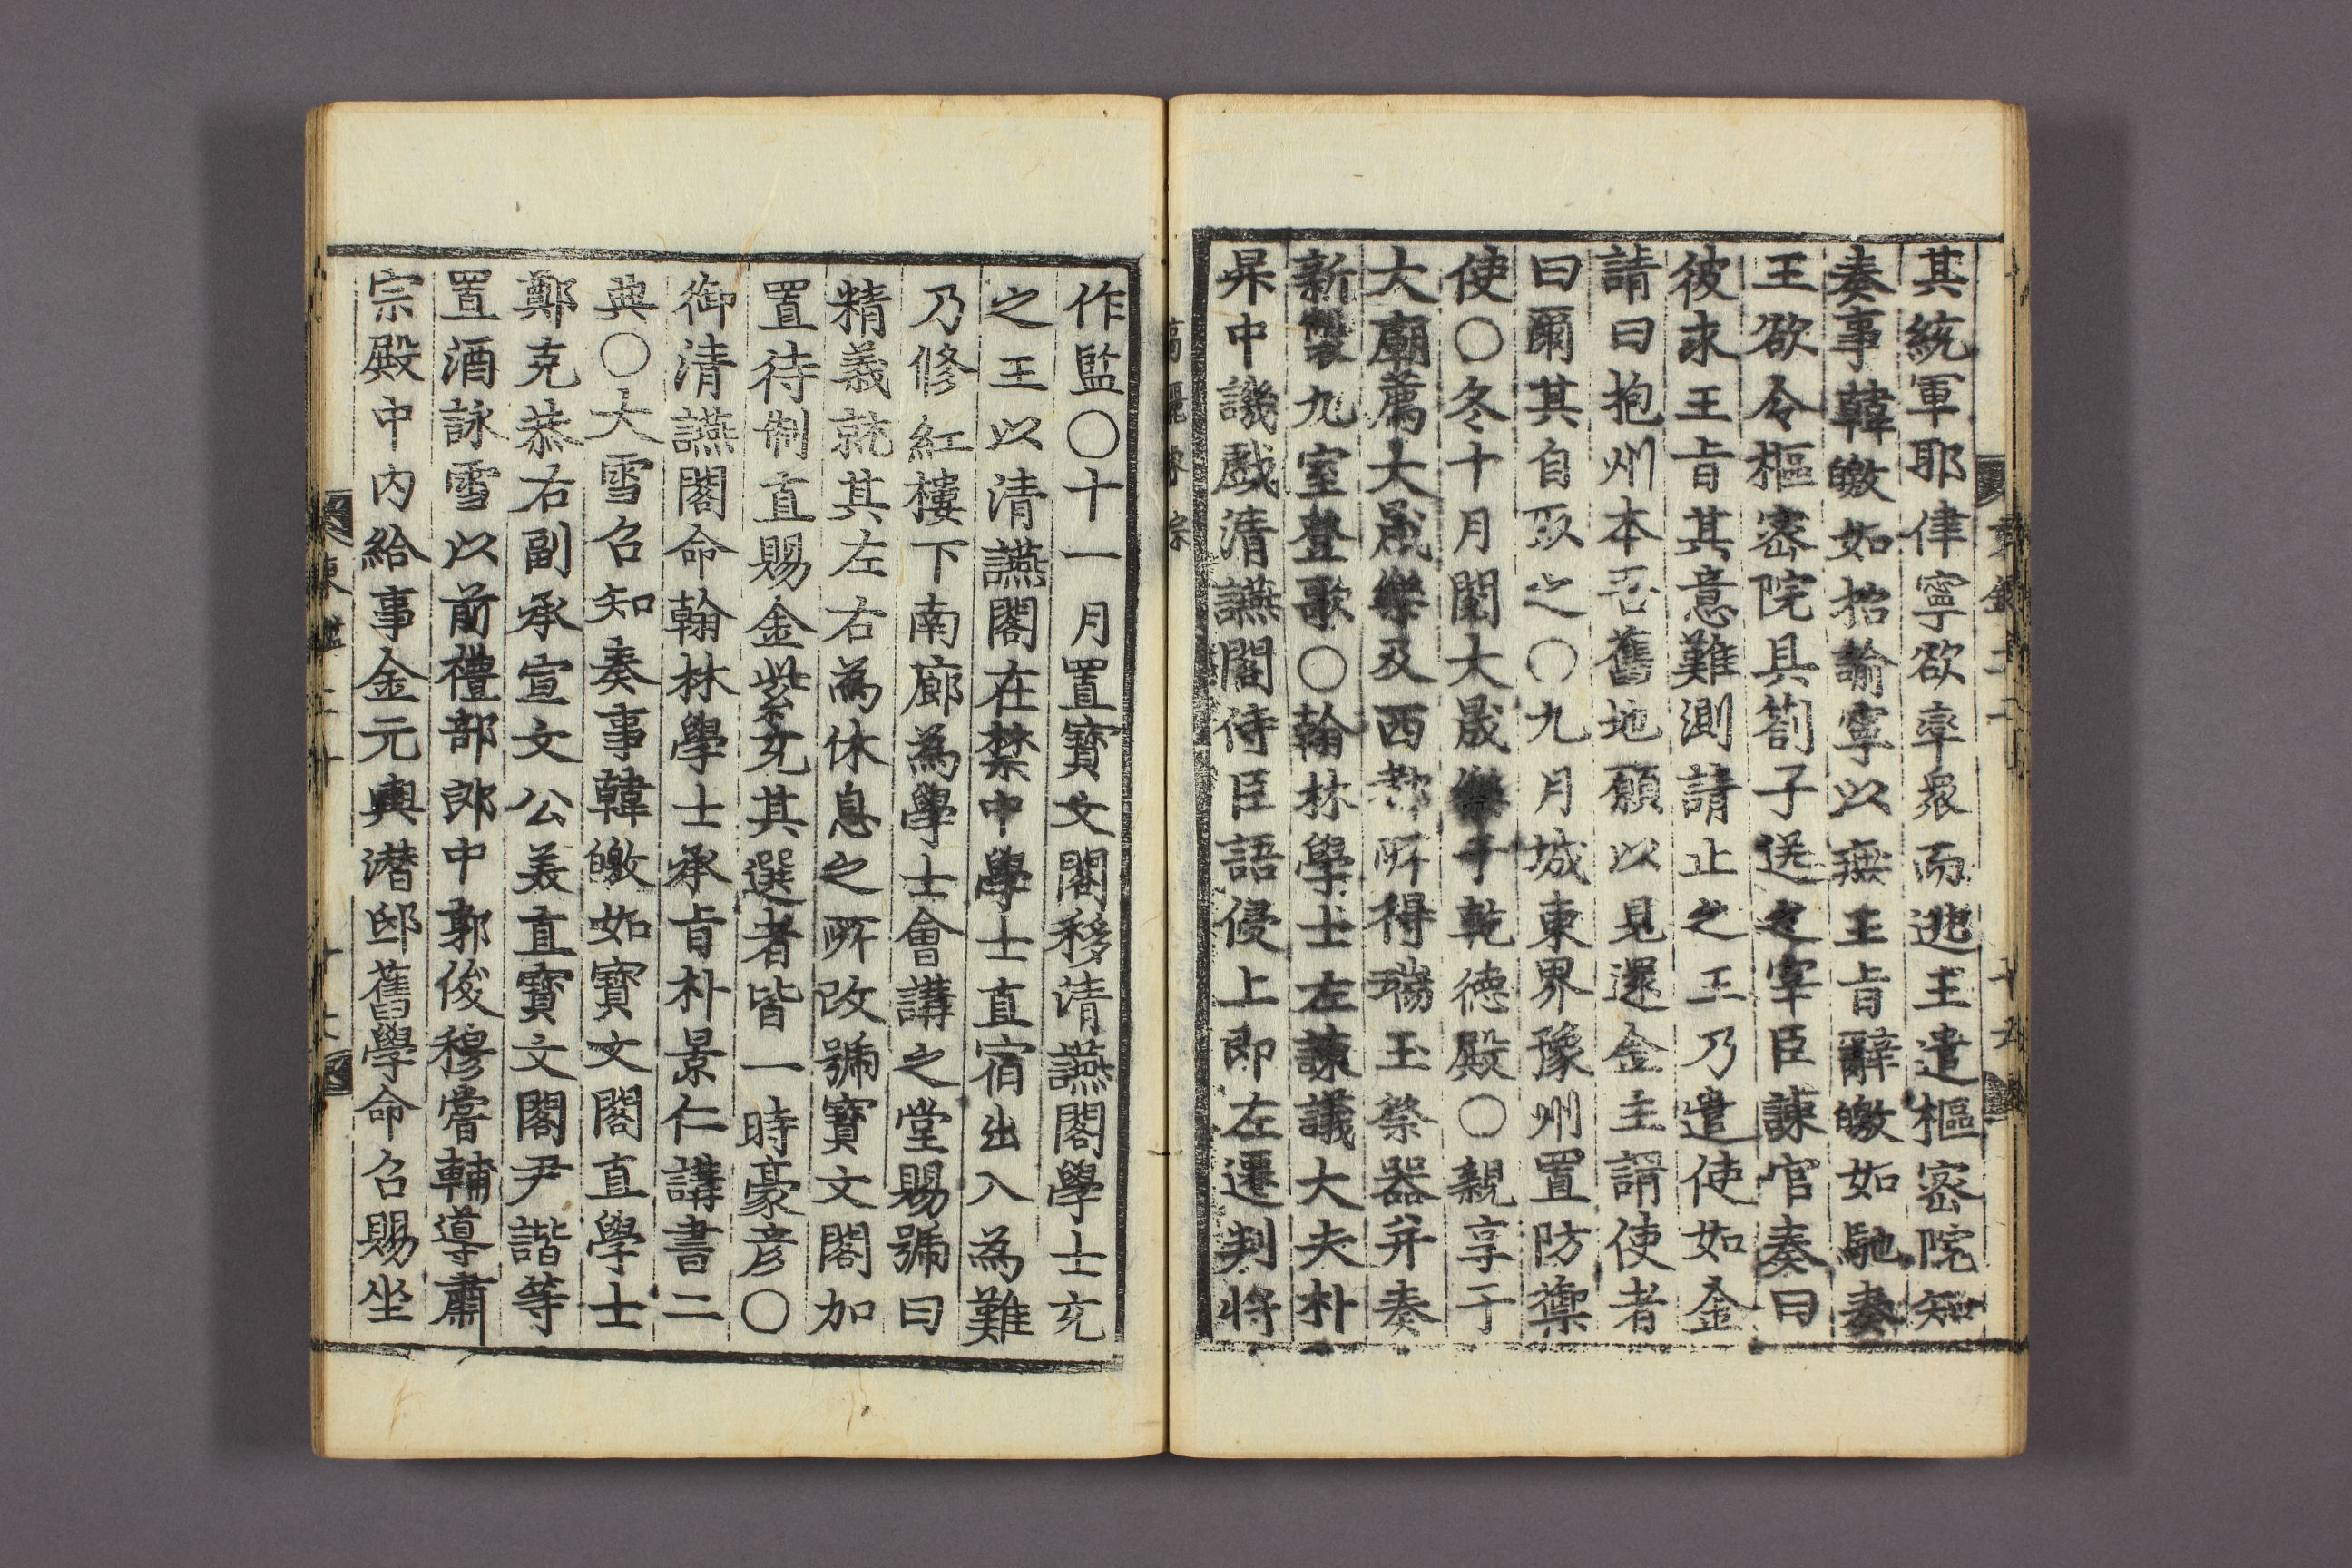 其統軍耶律寧欲率衆而逃王遣樞密院知
奏事韓皦如招諭寧以無王旨辭皦如馳奏
王欲令樞密院具劄子送之宰臣諫官奏曰
彼求王旨其意難測請止之王乃遣使如金
請曰抱州本吾舊地願以見還金主謂使者
曰爾其自取之○九月城東界豫州置防禦
使○冬十月閱大晟樂于乾德殿○親享于
大廟薦大晟樂及西都所得瑞玉祭器并奏
新製九室登歌○翰林學士左諫議大夫朴
昇中譏戱清讌閣侍臣語侵上即左遷判將
高麗睿宗
作監○十一月置寶文閣移清讌閣學士充
之王以清讌閣在禁中學士直宿出入爲難
乃修紅樓下南廊爲學士會講之堂賜號曰
精義就其左右爲休息之所改號寶文閣加
置待制直賜金紫充其選者皆一時豪彦○
御清讌閣命翰林學士承旨朴景仁講書二
典○大雪召知奏事韓皦如寶文閣直學士
鄭克恭右副承宣文公美直寶文閣尹諧等
置酒詠雪以前禮部郎中郭俊穆嘗輔導肅
宗殿中內給事金元輿潛邸舊學命召賜坐